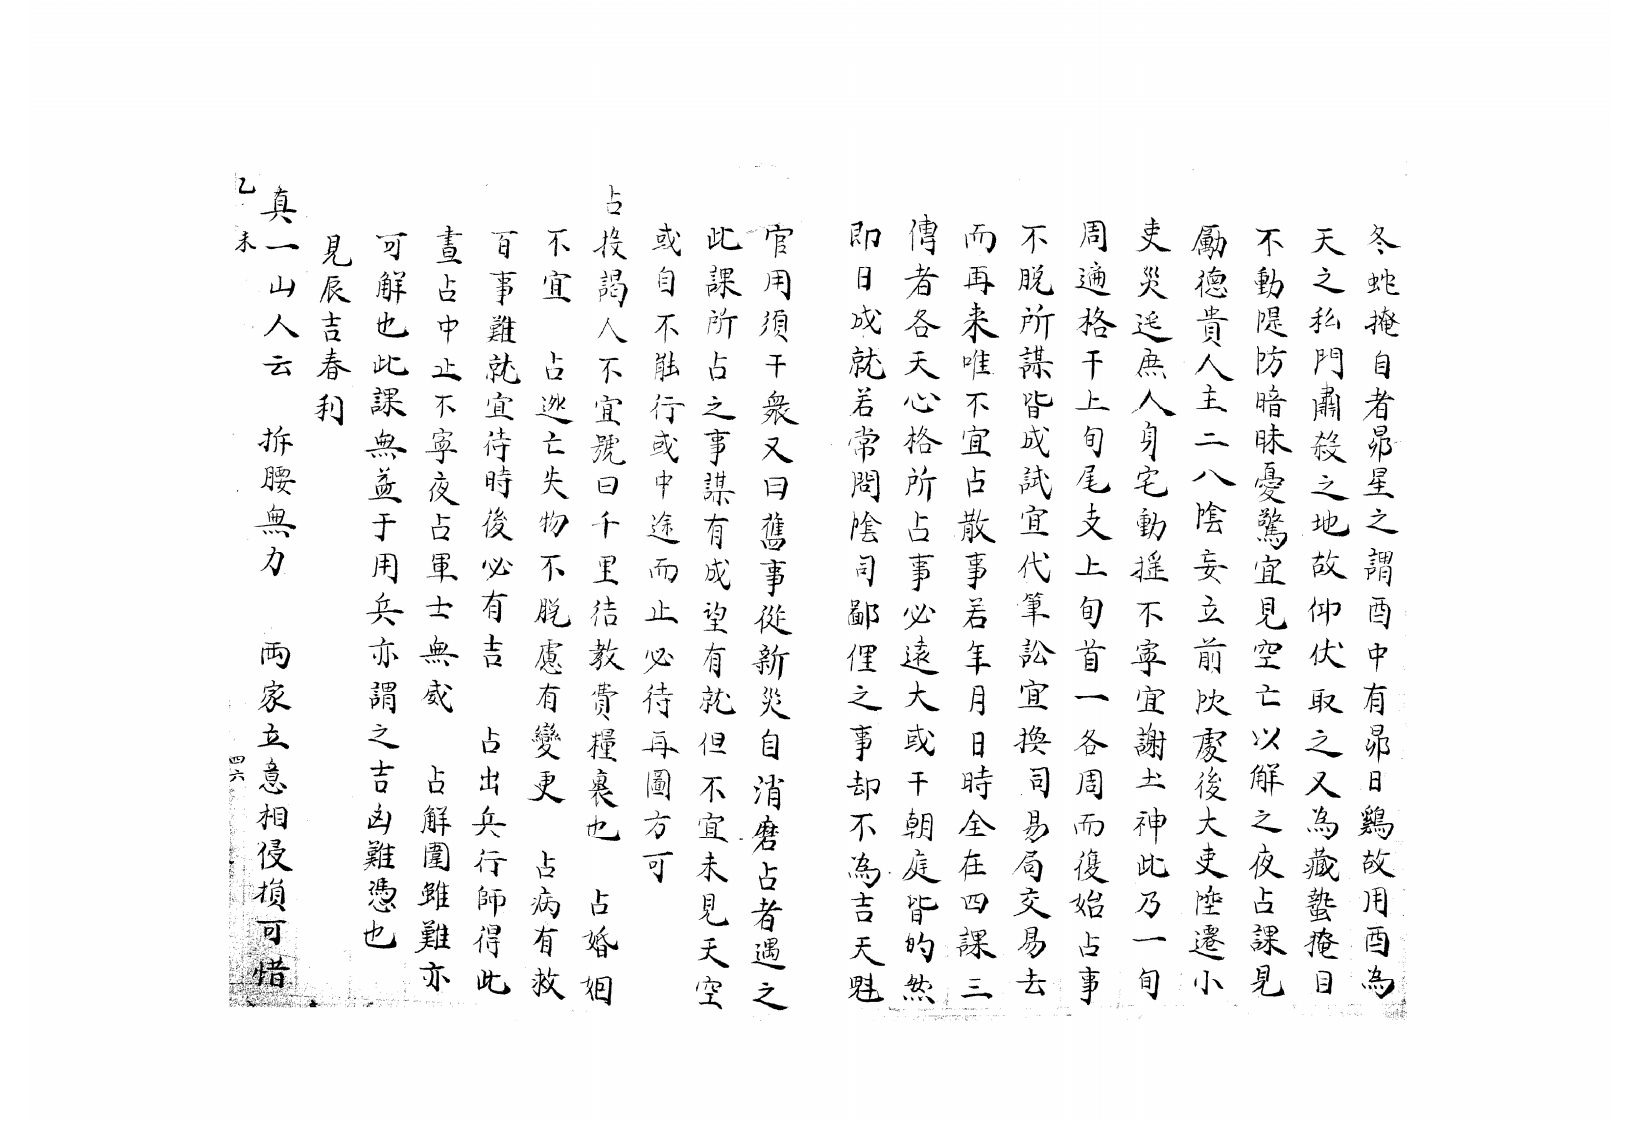 冬蛇掩自者昴星之謂酉中有昴日鷄故用酉為
天之私門肅殺之地故仰伏取之又為藏蟄掩目
不動隄防暗昧憂驚宜見空亡以解之夜占課見
勵德貴人主二八陰妄立前欣處後大吏陞遷小
吏災迍庶人身宅動摇不寕宜謝土神此乃一旬
周遍格干上旬尾支上旬首一各周而復始占事
不脱所謀皆成試宜代筆訟宜換司易局交易去
而再来唯不宜占散事若年月日時全在四課三
傳者各天心格所占事必遠大或干朝庭皆的然
即日成就若常問陰司鄙俚之事却不為吉天魁
官用須干衆又曰舊事從新災自消磨占者遇之
此課所占之事謀有成望有就但不宜未見天空
或自不能行或中途而止必待再圖方可
占投謁人不宜號曰千里徒教費糧裹也 占婚姻
不宜 占逃亡失物不脱慮有變更 占病有救
百事難就宜待時後必有吉 占出兵行師得此
晝占中止不寧夜占軍士無威 占解圍雖難亦
可解也此課無益于用兵亦謂之吉凶難憑也
見辰吉春利
真一山人云 拆腰無力 両家立意相侵損可惜
乙未
四六